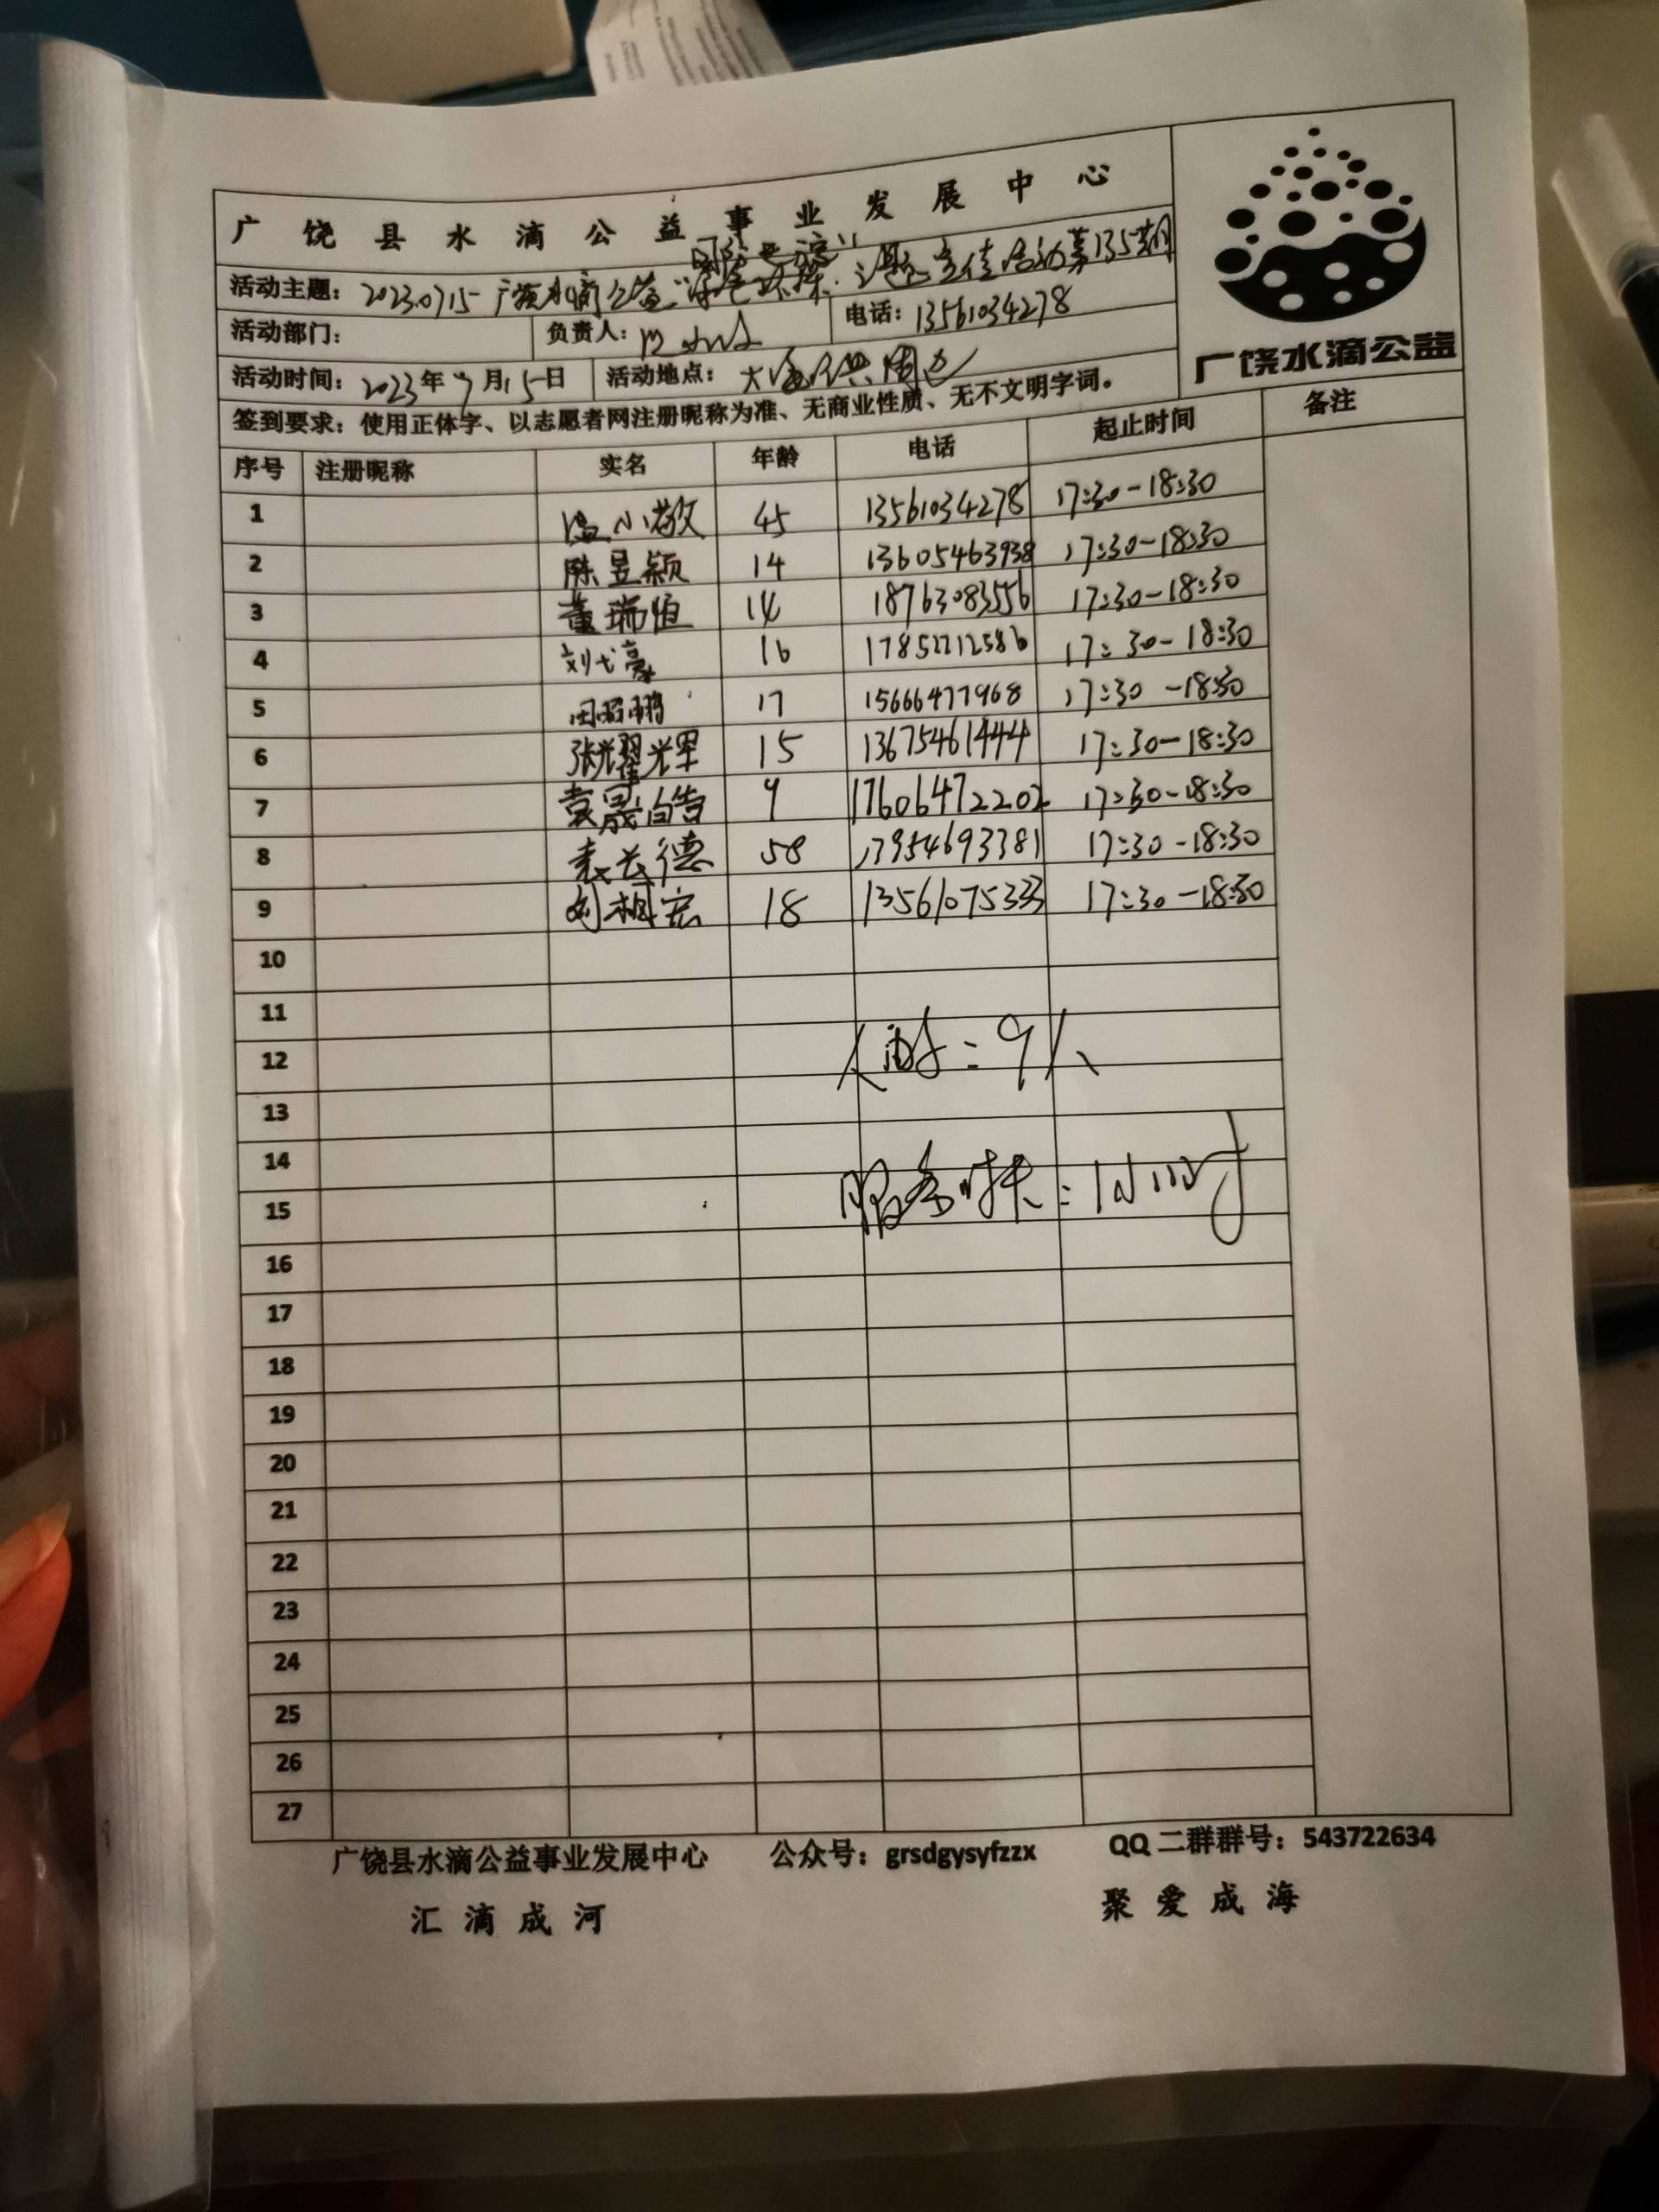 广饶县水滴公益事业发展中心
广饶水滴公益
活动主题：2023.0715-广饶水滴公益“绿色环保”主题宣传活动第135期
活动部门： 负责人： 电话：13561034278
活动时间：2023年7月15日 活动地点：大海 周边
签到要求：使用正体字、以志愿者网注册昵称为准、无商业性质、无不文明字词。
序号 注册昵称 实名 年龄 电话 起止时间 备注
1 温小敬 45 13561034278 17:30-18:30
2 陈昱颖 14 13605463938 17:30-18:30
3 董瑞恒 14 18763083556 17:30-18:30
4 刘弋豪 16 17852712586 17:30-18:30
5 田昭鹏 17 15666477968 17:30-18:30
6 张耀 15 13675461444 17:30-18:30
7 袁晟皓 9 17606472202 17:30-18:30
8 袁长德 58 13954693381 17:30-18:30
9 刘桐宏 18 13561075333 17:30-18:30
10
11
12 人时：9人
13
14
15 服务时长：1小时
16
17
18
19
20
21
22
23
24
25
26
27
广饶县水滴公益事业发展中心 公众号：grsdgysyfzzx QQ二群群号：543722634
汇滴成河 聚爱成海